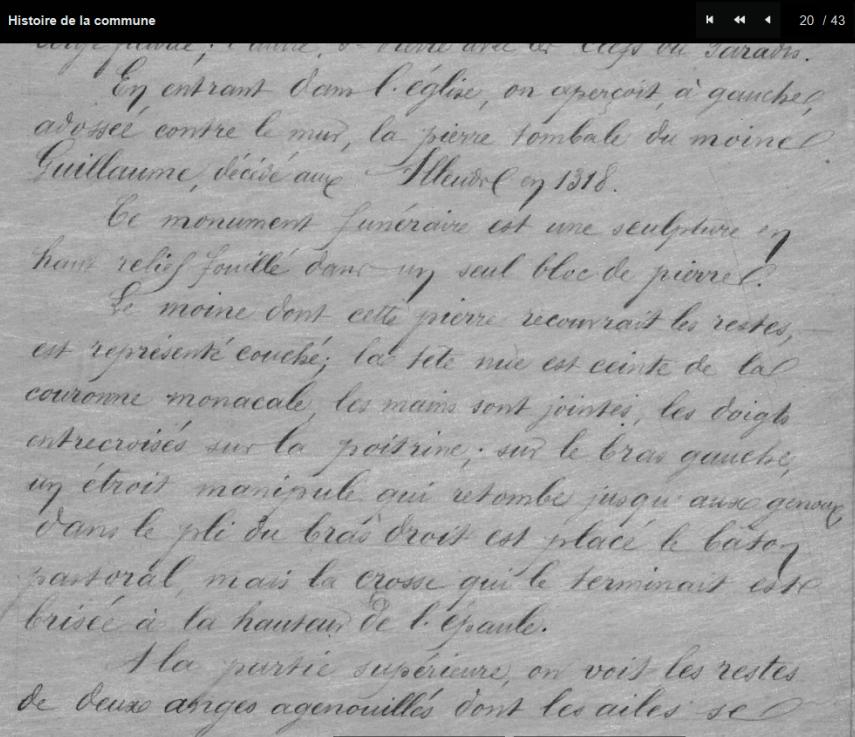 Histoire de la commune
20 / 43
St Pierre avec les clefs du Paradis.
En entrant dans l'église, on aperçoit, à gauche,
adossée contre le mur, la pierre tombale du moine
Guillaume, décédé aux Alleuds en 1318.
Ce monument funéraire est une sculpture en
haut relief fouillé dans un seul bloc de pierre.
Le moine dont cette pierre recouvrait les restes,
est représenté couché; la tête nue est ceinte de la
couronne monacale, les mains sont jointes, les doigts
entrecroisés sur la poitrine; sur le bras gauche,
un étroit manipule qui retombe jusqu'aux genoux,
dans le pli du bras droit est placé le bâton
pastoral, mais la crosse qui le terminait est
brisée à la hauteur de l'épaule.
A la partie supérieure, on voit les restes
de deux anges agenouillés dont les ailes se